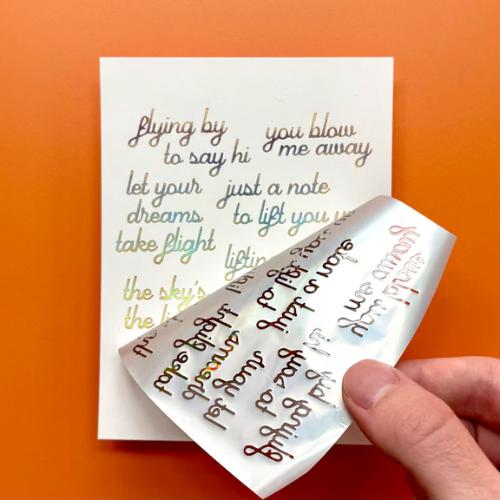 flying by
to say hi
you blow
me away
let your
dreams
take flight
just a note
to lift you
the sky's
the